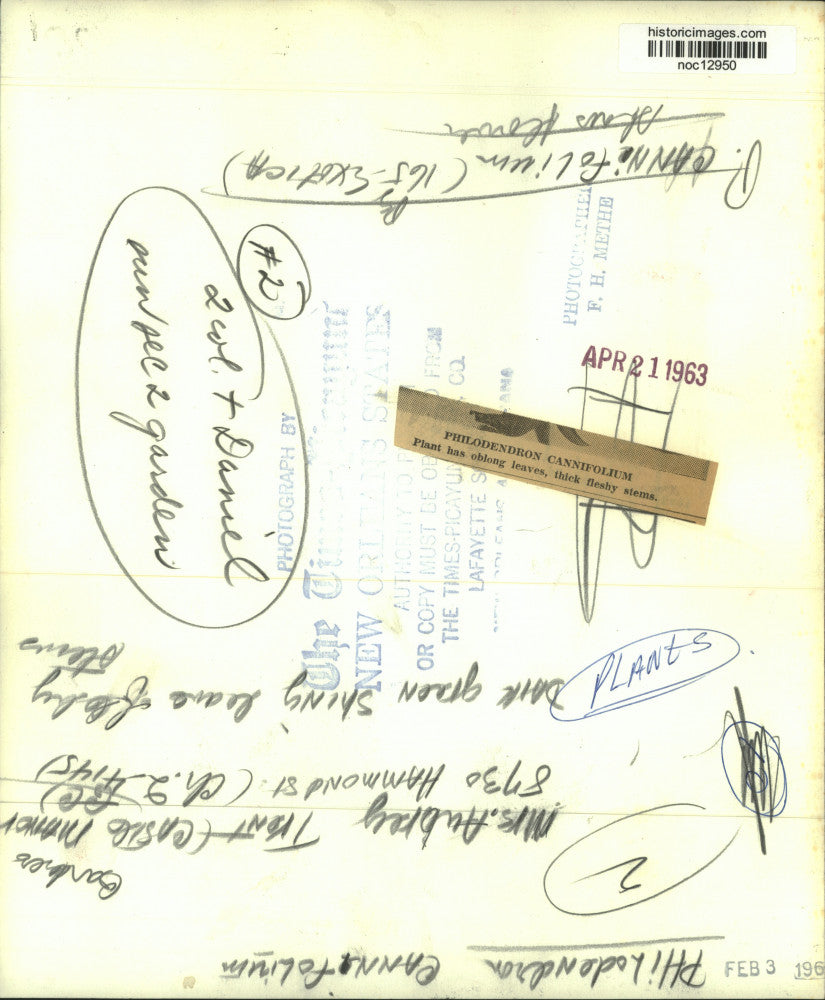 historicimages.com
noc12950
P. CANNIFOLIUM (165-EXOTICA)
#2
2 col. + Daniel
sun sec 2 garden
PHOTOGRAPH BY
The Times-Picayune
NEW ORLEANS STATES
AUTHORITY TO
OR COPY MUST BE FROM
THE TIMES-PICAYUNE CO.
LAFAYETTE
PHOTOGRAPHER
F. H. METHE
APR 21 1963
PHILODENDRON CANNIFOLIUM
Plant has oblong leaves, thick fleshy stems.
PLANTS
Dark green shiny leave fleshy
stems
8730 Hammond St. (Ch. 2-4145)
Mrs. Aubrey Trent (Castle Manor
Gardens
2
Philodendron CANNIFOLIUM
FEB 3 196